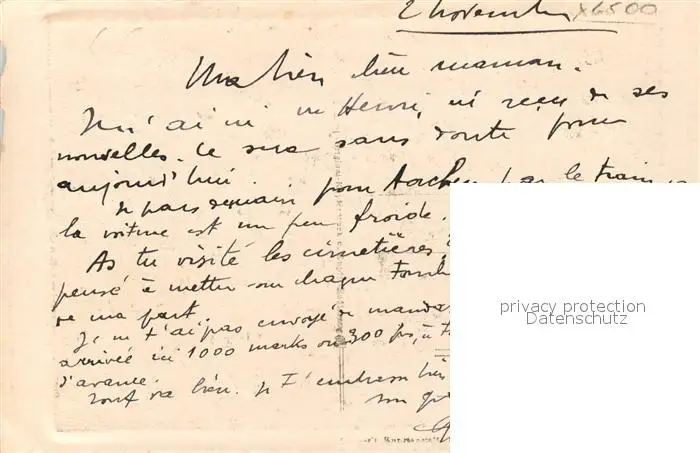 2 Novembre x6500
Ma bien bien maman.
Je n'ai vu ni Henri, ni reçu de ses
nouvelles. Ce sera sans doute pour
aujourd'hui.
Je pars demain pour Aachen par le train
la voiture est un peu froide.
As tu visité les cimetières,
pensé à mettre sur chaque Tombe
de ma part.
Je ne t'ai pas envoyé de mandat
arrivée ici 1000 marks ou 300 frs, à
d'avance.
Tout va bien. Je t'embrasse bien
privacy protection
Datenschutz